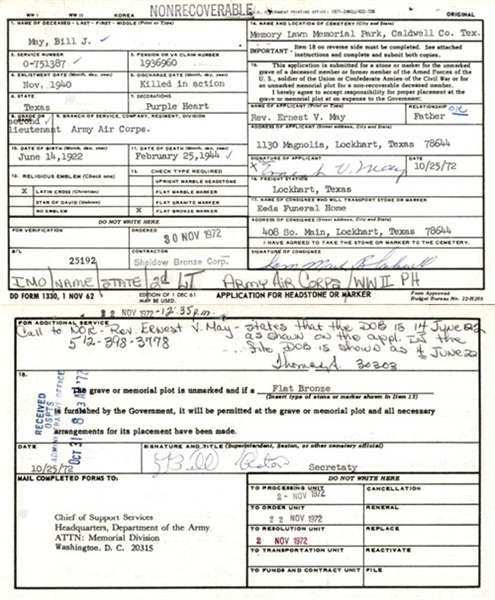 WW I WW II KOREA NONRECOVERABLE ORIGINAL
1. NAME OF DECEASED - LAST - FIRST - MIDDLE (Print or Type)
May, Bill J. ✓
14. NAME AND LOCATION OF CEMETERY (City and State)
Memory Lawn Memorial Park, Caldwell Co. Tex.
IMPORTANT - Item 18 on reverse side must be completed. See attached
instructions and complete and submit both copies.
2. SERVICE NUMBER
0-751387 ✓
3. PENSION OR VA CLAIM NUMBER
1936960
15. This application is submitted for a stone or marker for the unmarked
grave of a deceased member or former member of the Armed Forces of the
U. S., soldier of the Union or Confederate Armies of the Civil War or for
an unmarked memorial plot for a non-recoverable deceased member.
I hereby agree to accept responsibility for proper placement at the
grave or memorial plot at no expense to the Government.
4. ENLISTMENT DATE (Month, day, year)
Nov. 1940
5. DISCHARGE DATE (Month, day, year)
Killed in action
6. STATE
Texas
7. DECORATIONS
Purple Heart
NAME OF APPLICANT (Print or Type)
Rev. Ernest V. May
RELATIONSHIP
Father
8. GRADE OR
second
lieutenant
9. BRANCH OF SERVICE, COMPANY, REGIMENT, DIVISION
Army Air Corps.
ADDRESS OF APPLICANT (Street address, City and State)
1130 Magnolis, Lockhart, Texas 78644
10. DATE OF BIRTH (Month, day, year)
June 14, 1922
11. DATE OF DEATH (Month, day, year)
February 25, 1944 ✓
SIGNATURE OF APPLICANT
Ernest V. May
DATE
10/25/72
12. RELIGIOUS EMBLEM (Check one)
X LATIN CROSS (Christian)
STAR OF DAVID (Hebrew)
NO EMBLEM
13. CHECK TYPE REQUIRED
UPRIGHT MARBLE HEADSTONE
FLAT MARBLE MARKER
FLAT GRANITE MARKER
X FLAT BRONZE MARKER
16. FREIGHT STATION
Lockhart, Texas
17. NAME OF CONSIGNEE WHO WILL TRANSPORT STONE OR MARKER
Eeds Funeral Home
DO NOT WRITE HERE
FOR VERIFICATION
ORDERED
30 NOV 1972
ADDRESS OF CONSIGNEE (Street address, City and State)
408 So. Main, Lockhart, Texas 78644
I HAVE AGREED TO TAKE THE STONE OR MARKER TO THE CEMETERY.
B/L
25192
CONTRACTOR
Sheidow Bronze Corp.
SIGNATURE OF CONSIGNEE
IMO/NAME/STATE 2d LT ARMY AIR CORPS/WW II PH
DD FORM 1330, 1 NOV 62
EDITION OF 1 DEC 61
APPLICATION FOR HEADSTONE OR MARKER
Form Approved
Budget Bureau No.
22 NOV 1972 - 12:35 p.m.
FOR ADDITIONAL SERVICE
Call to NOK - Rev. Ernest V. May - states that the DOB is 14 June 1922
512-398-3778 as shown on the appl. In the
file, DOB is shown as 4 June 22
Thomas 30303
18.
The grave or memorial plot is unmarked and if a Flat Bronze
(Insert type of stone or marker shown in Item 13)
is furnished by the Government, it will be permitted at the grave or memorial plot and all necessary
arrangements for its placement have been made.
RECEIVED
OSPTS
ADMINISTRATIVE OFFICE
OCT 31 8 03 AM '72
DATE
10/25/72
SIGNATURE AND TITLE (Superintendent, Sexton, or other cemetery official)
Secretaty
MAIL COMPLETED FORMS TO:
DO NOT WRITE HERE
Chief of Support Services
Headquarters, Department of the Army
ATTN: Memorial Division
Washington, D. C. 20315
TO PROCESSING UNIT
2 - NOV 1972
CANCELLATION
TO ORDER UNIT
22 NOV 1972
RENEWAL
TO RESOLUTION UNIT
2 NOV 1972
REPLACE
TO TRANSPORTATION UNIT
TO FUNDS AND CONTRACT UNIT
FILE